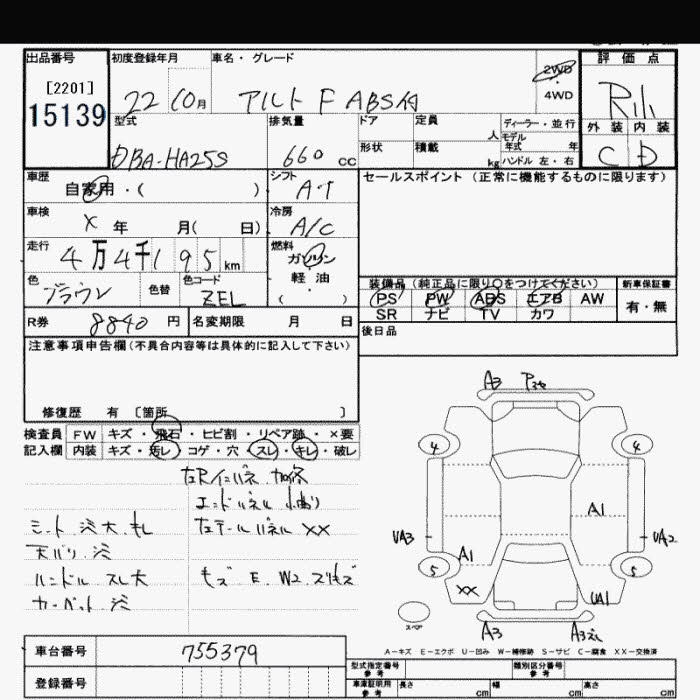 出品番号
[2201]
15139
初度登録年月
22 10月
車名・グレード
アルト F ABS付
2WD
・
4WD
評価点
外装 内装
C D
型式
DBA-HA25S
排気量
660 cc
ドア
定員
人
形状
積載
kg
ディーラー・並行
モデル
年式 年
ハンドル 左・右
車歴
自家用・( )
シフト
AT
セールスポイント (正常に機能するものに限ります)
車検
X 年 月( 日)
冷房
A/C
走行
4万4千195km
燃料
ガソリン
・
軽油
( )
色
ブラウン
色替
色コード
ZEL
装備品 (純正品に限り○をつけてください)
新車保証書
PS PW ABS エアB AW
SR ナビ TV カワ
有・無
R券
8840円
名変期限 月 日
後日品
注意事項申告欄(不具合内容等は具体的に記入して下さい)
修復歴 有 〔箇所 〕
検査員 FW キズ・飛石・ヒビ割・リペア跡・×要
記入欄 内装 キズ・汚レ・コゲ・穴・スレ・キレ・破レ
エンドパネル
シート シミ大 キレ
左テールパネル XX
天バリ シミ
ハンドル スレ大
キズ E W2 スリキズ
カーペット シミ
A3
4
4
A1
UA3
UA2
A1
5
5
XX
UA1
スペア
A3
A-キズ E-エクボ U-凹み W-補修跡 S-サビ C-腐食 XX-交換済
車台番号
755379
登録番号
型式指定番号
参考
類別区分番号
参考
車庫証明用
参考
長さ cm
幅 cm
高さ cm